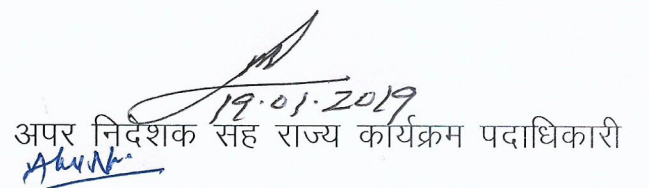 19.01.2019
अपर निदेशक सह राज्य कार्यक्रम पदाधिकारी